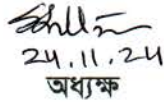 24.11.24
অধ্যক্ষ